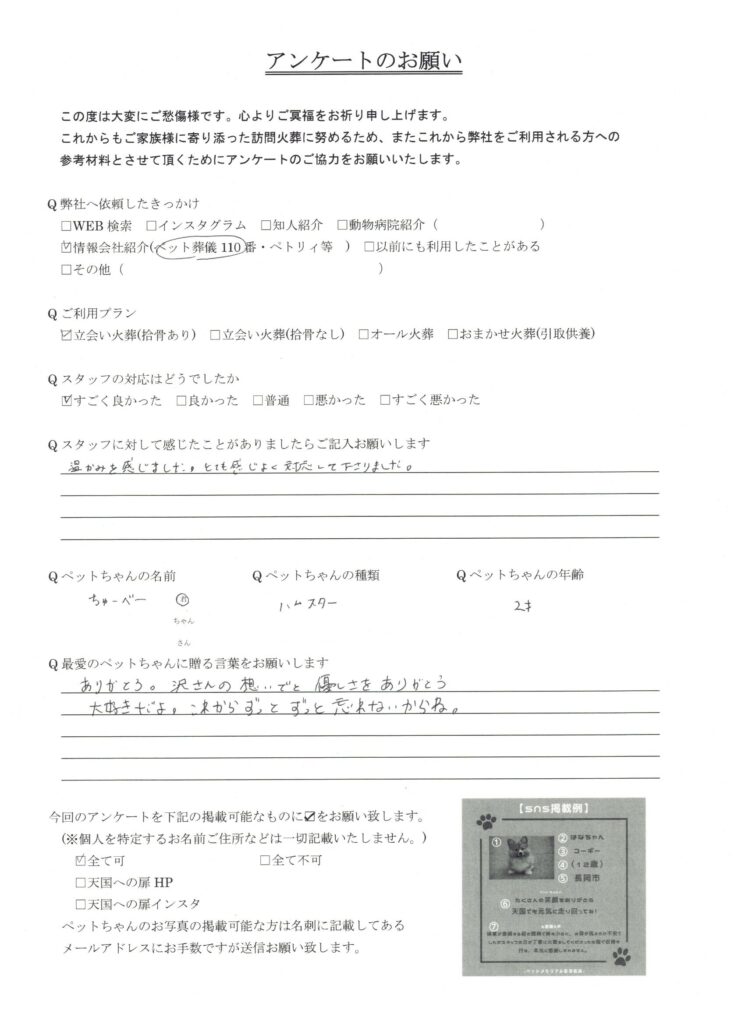 アンケートのお願い
この度は大変にご愁傷様です。心よりご冥福をお祈り申し上げます。
これからもご家族様に寄り添った訪問火葬に努めるため、またこれから弊社をご利用される方への
参考材料とさせて頂くためにアンケートのご協力をお願いいたします。
Q 弊社へ依頼したきっかけ
□WEB 検索 □インスタグラム □知人紹介 □動物病院紹介（ ）
☑情報会社紹介(ペット葬儀 110番・ペトリィ等 ) □以前にも利用したことがある
□その他（ ）
Q ご利用プラン
☑立会い火葬(拾骨あり) □立会い火葬(拾骨なし) □オール火葬 □おまかせ火葬(引取供養)
Q スタッフの対応はどうでしたか
☑すごく良かった □良かった □普通 □悪かった □すごく悪かった
Q スタッフに対して感じたことがありましたらご記入お願いします
温かみを感じました。とても感じよく対応して下さりました。
Q ペットちゃんの名前 Q ペットちゃんの種類 Q ペットちゃんの年齢
ちゅーべー ハムスター 2才
ちゃん
さん
Q 最愛のペットちゃんに贈る言葉をお願いします
ありがとう。沢さんの想いでと優しさをありがとう
大好きだよ。これからずっとずっと忘れないからね。
今回のアンケートを下記の掲載可能なものに☑をお願い致します。
(※個人を特定するお名前ご住所などは一切記載いたしません。)
☑全て可 □全て不可
□天国への扉 HP
□天国への扉インスタ
ペットちゃんのお写真の掲載可能な方は名刺に記載してある
メールアドレスにお手数ですが送信お願い致します。
【sns掲載例】
①
② はなちゃん
③ コーギー
④ (12歳)
⑤ 長岡市
⑥ たくさんの笑顔をありがとう
天国でも元気に走り回ってね!
⑦